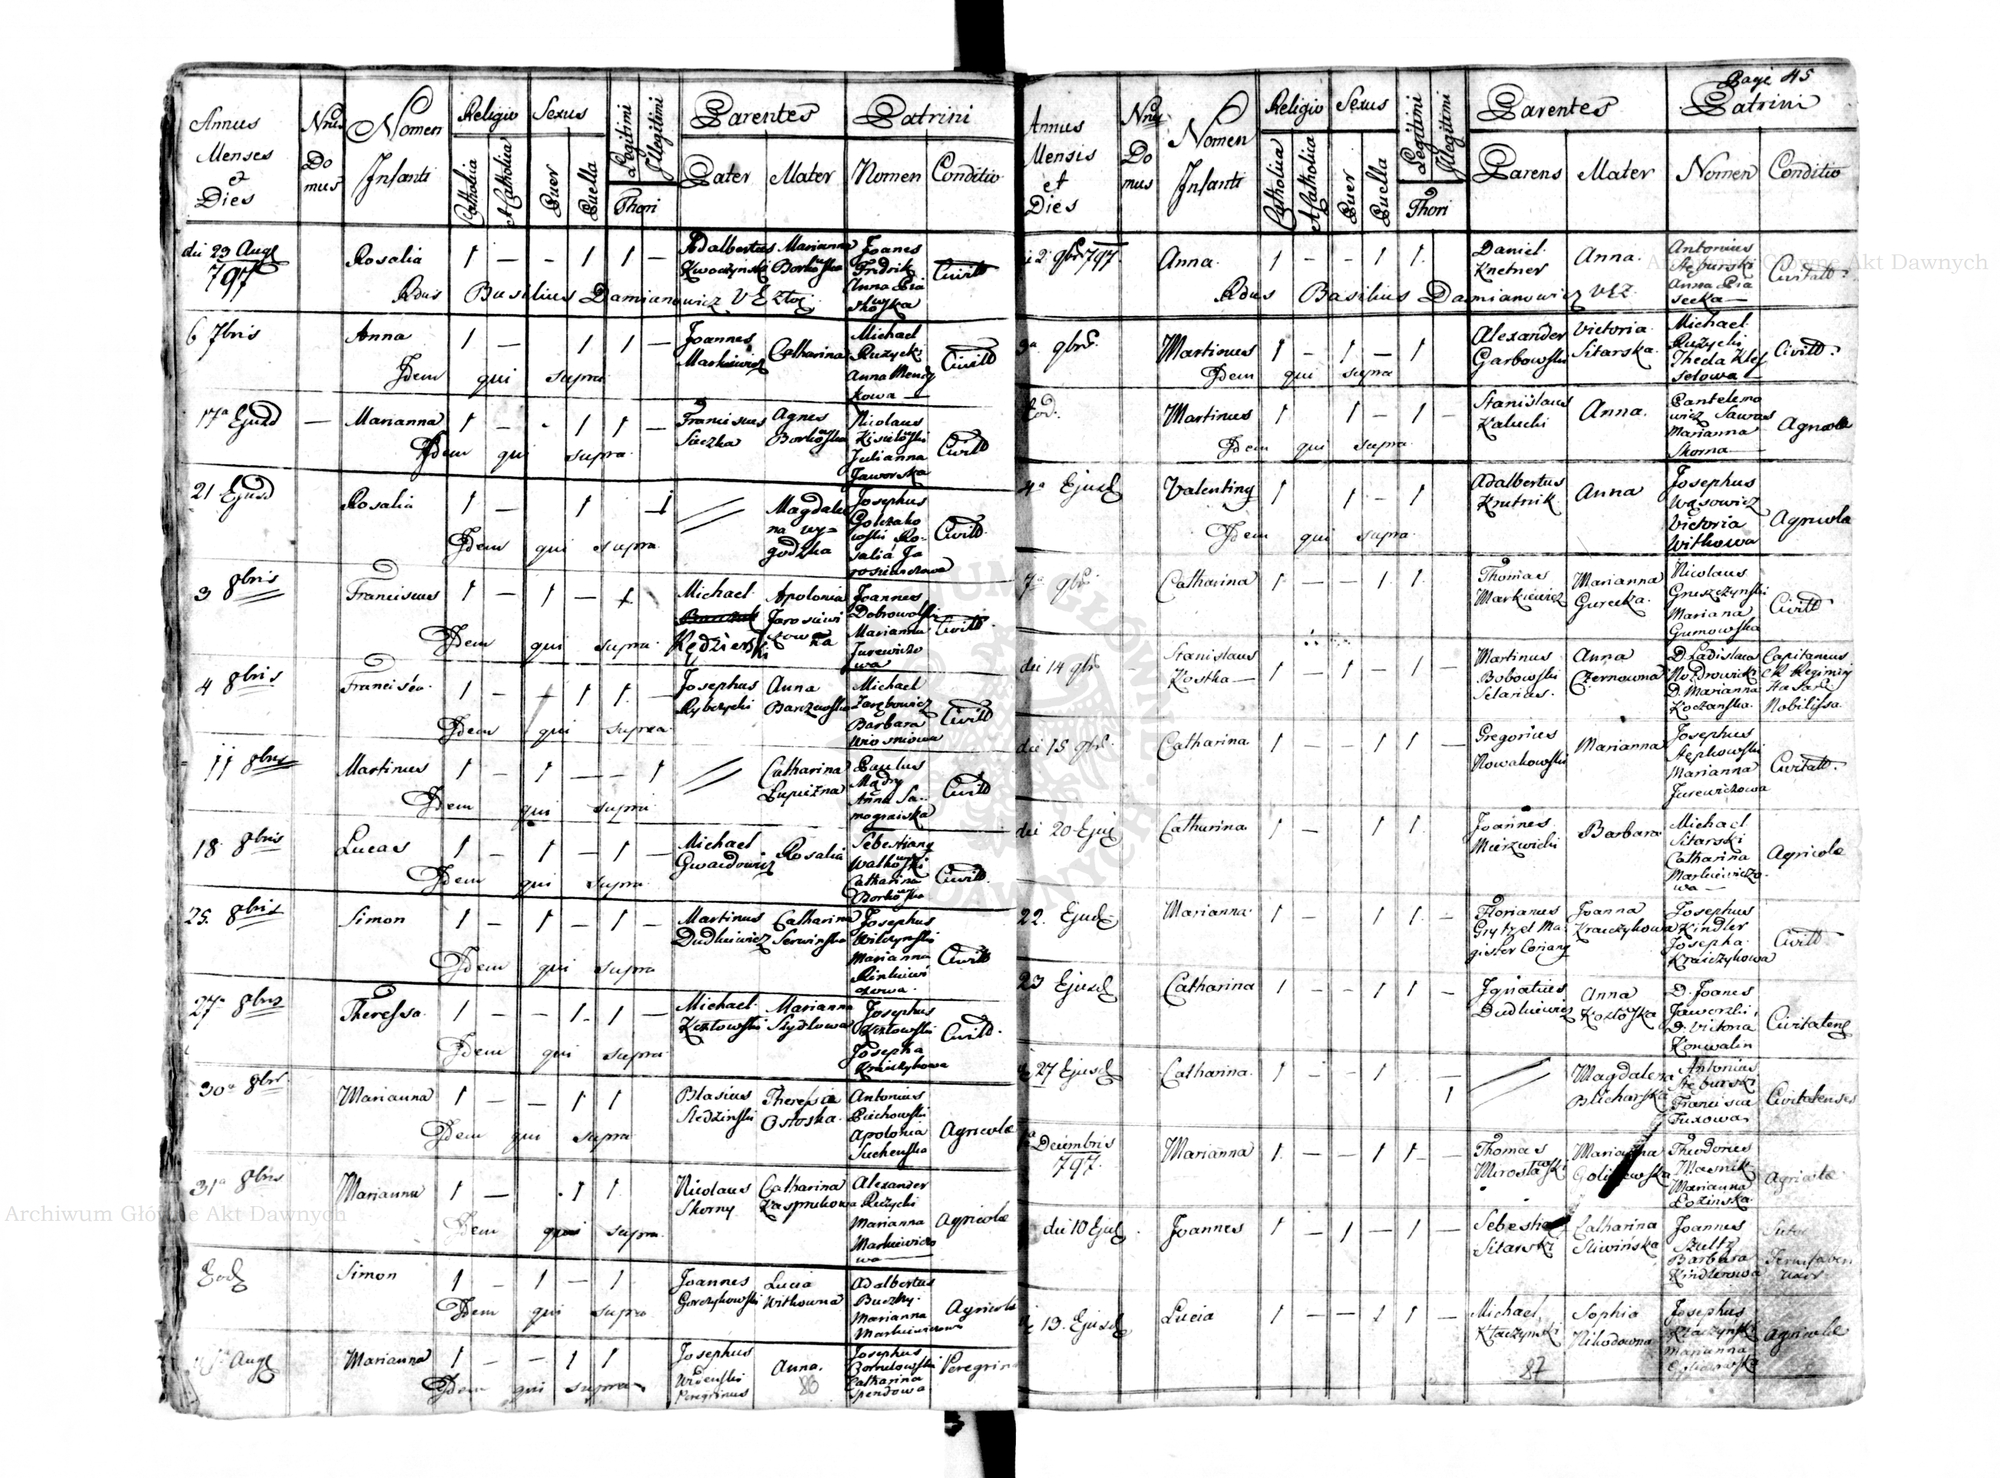 Annus Menses et Dies
Nrus Domus
Nomen Infanti
Religio
Catholica
Acatholica
Sexus
Puer
Puella
Legitimi
Illegitimi
Thori
Parentes
Pater
Mater
Patrini
Nomen
Conditio
die 23 Augt 797
Rosalia
1 — — 1 1 —
Adalbertus Kwoczynski
Marianna Borkowska
Joanes Fridrik Anna Piaskowska
Civitt
Adus Basilius Damianowicz V Złoc
6 7bris
Anna
1 — 1 1 —
Joannes Markiewicz
Catharina
Michael Ruzycki Anna Mendzkowa
Civitt
Idem qui supra
17a Ejusd
—
Marianna
1 — 1 1 —
Franciscus Saczka
Agnes Borkowska
Nicolaus Kisielowski Julianna Jaworska
Civitt
Idem qui supra
21 Ejusd
Rosalia
1 — 1 1
Magdalena wygodzka
Josephus Golczakowski Rosalia Jarosiewiczowa
Civitt
Idem qui supra
3 8bris
Franciscus
1 — 1 — 1
Michael Kędzierski
Apolonia
Joannes Dobrowolski Marianna Jurewiczowa
Civitt
Idem qui supra
4 8bris
Francisca
1 — 1 1 —
Josephus Rybczycki
Anna Barczewska
Michael Zarębowicz Barbara Wiosniowa
Civitt
Idem qui supra
11 8bris
Martinus
1 — 1 — — 1
Catharina Łupiezna
Paulus Mądry Anna Samogranska
Civitt
Idem qui supra
18 8bris
Lucas
1 — 1 — 1 —
Michael Gwardowicz
Rosalia
Sebestiang Walkowski Catharina Borkowska
Civitt
Idem qui supra
25. 8bris
Simon
1 — 1 — 1 —
Martinus Dudkiewicz
Catharina Serwinska
Josephus Wilczynski Marianna Rinkiewiczowa
Civitt
Idem qui supra
27a 8bris
Theressa
1 — — 1 1 —
Michael Kozłowski
Marianna Szydłowa
Josephus Kozłowski Josepha Kraiczykowa
Civitt
Idem qui supra
30a 8bris
Marianna
1 — — 1 1
Blasius Sledzinski
Theresia Ostoska
Antonius Piechowski Apolonia Suchenska
Agricolæ
Idem qui supra
31a 8bris
Marianna
1 — 1 1
Nicolaus Skorny
Catharina Kasprukowa
Alexander Ruzycki Marianna Markiewiczowa
Agricolæ
Idem qui supra
Eod
Simon
1 — 1 — 1
Joannes Gorczykowski
Lucia Witkowna
Adalbertus Buczny Marianna Markiewiczowa
Agricolæ
Idem qui supra
Augt
Marianna
1 — — 1 1
Josephus Widenski Peregrinus
Anna.
Josephus Bomulowski Catharina Spendowa
Peregrin
Idem qui supra
86
Page 45
Annus Mensis et Dies
Nrus Domus
Nomen Infanti
Religio
Catholica
Acatholica
Sexus
Puer
Puella
Legitimi
Illegitimi
Thori
Parentes
Parens
Mater
Patrini
Nomen
Conditio
2. 9bris 797
Anna.
1 — — 1 1
Daniel Knetner
Anna.
Antonius Stęburski Anna Piasecka
Civitatt:
Adus Basilius Damianowicz VEZ
3a 9bris
Martinus
1 — 1 — 1
Alexander Garbowski
Victoria Sitarska
Michael Ruzycki Thecla Kleyselowa
Civitt:
Idem qui supra
Eod.
Martinus
1 1 — 1 —
Stanislaus Kalucki
Anna.
Pantelemowicz Sawas Marianna Skorna
Agricolæ
Idem qui supra
4a Ejusd
Valenting
1 1 — 1
Adalbertus Krutnik
Anna
Josephus Wąsowicz Victoria Witkowa
Agricola
Idem qui supra
7a 9bris
Catharina
1 — — 1 1
Thomas Markiewicz
Marianna Gurecka
Nicolaus Gruszczynski Mariana Gumowska
Civitt
die 14 9bris
Stanislaus Kostka
1 — 1 — 1 —
Martinus Bobowski Selarius.
Anna Czernowna
D. Ladislaus Nozdrowicki D. Marianna Koczanska.
Capitaneus CR Regiminis Nobilissa.
die 15 9bris
Catharina
1 — — 1 1 —
Gregorius Nowakowski
Marianna
Josephus Stępkowski Marianna Jurewiczowa
Civitatt.
die 20 Ejus
Catharina
1 — 1 1
Joannes Mierzwicki
Barbara
Michael Sitarski Catharina Markiewiczowa
Agricolæ
22. Ejusd
Marianna
1 — 1 1 —
Florianus Grytzel Magister Coriang
Joanna Kraiczykowa
Josephus Kindler Josepha Kraiczykowa
Civitt
23 Ejusd
Catharina
1 — — 1 1 —
Ignatius Dudkiewicz
Anna Kozłowska
D. Joanes Jaworski, D. Victoria Konwalin
Civitateng
27 Ejusd
Catharina.
1 — — 1 — 1
Magdalena Blicharska
Antonius Stęburski Francisca Tuxowa
Civitatenses
1a Decembris 797.
Marianna
1 — — 1 1 —
Thomas Mirosławski
Marianna
Theodorius Masnik Marianna Łozinska
Agricolæ
die 10 Ejusd
Joannes
1 — 1 — 1 —
Sebestian Sitarski
Catharina Sliwińska
Joannes Szultz Barbara Kindlerowa
13. Ejusd
Lucia
1 — — 1 1 —
Michael Kłaczynski
Sophia Nikodowna
Josephus Kłaczynski Marianna
Agricolæ
87
Archiwum Główne Akt Dawnych
Archiwum Główne Akt Dawnych